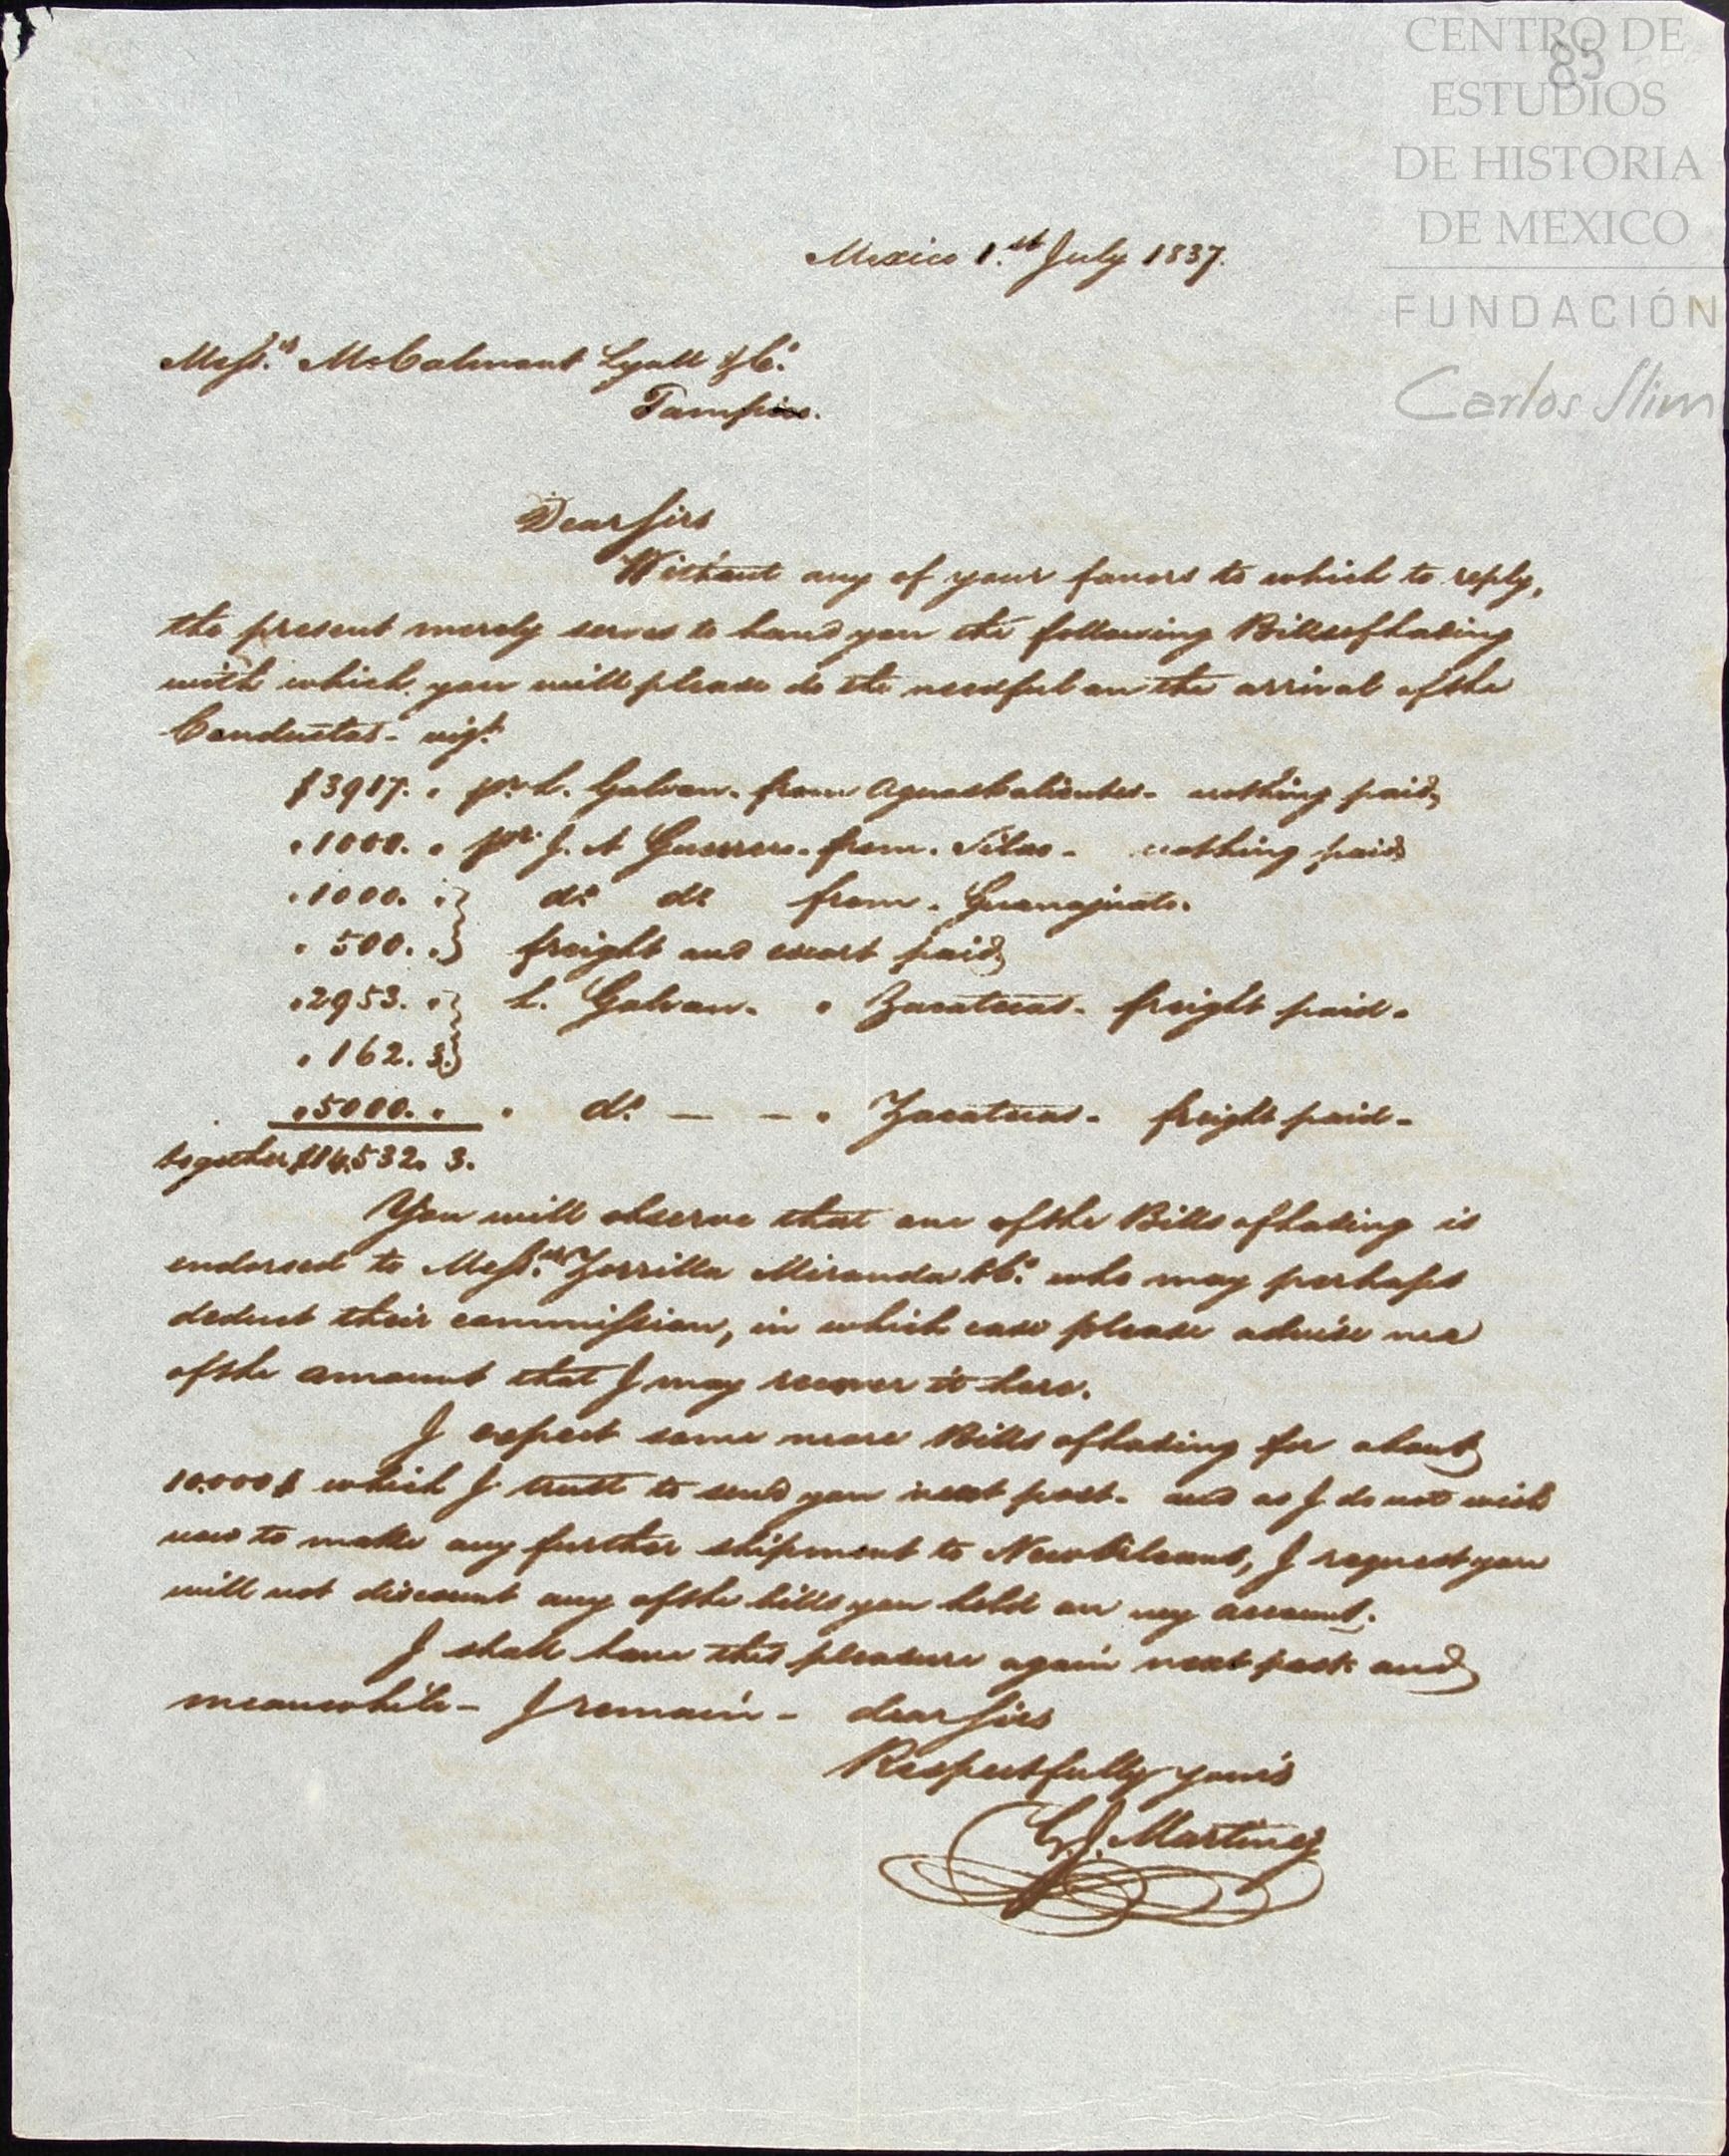 CENTRO DE
ESTUDIOS
DE HISTORIA
DE MEXICO
FUNDACIÓN
Carlos Slim
85
Mexico 1.st July 1837.
Mess.rs McCalmont Lyall & Co.
Tampico.
Dear Sirs
Without any of your favors to which to reply,
the present merely serves to hand you the following Bills of Lading
with which you will please do the needful on the arrival of the
Conductas - vizt.
$3917. " pr L. Galvan. from Aguascalientes - nothing paid
" 1000. " pr. J. A Guerrero. from. Silao - nothing paid
" 1000. " } do do from. Guanajuato.
" 500. " } freight and escort paid
" 2953. " } L. Galvan. " Zacatecas - freight paid -
" 162. 3. }
" 5000. " " do. — — " Zacatecas - freight paid -
together $14,532. 3.
You will observe that one of the Bills of Lading is
endorsed to Mess.rs Zorrilla Miranda & Co. who may perhaps
deduct their commission, in which case please advise me
of the amount that I may recover it here.
I expect some more Bills of Lading for about
10.000$ which I trust to send you next post - and as I do not wish
now to make any further shipment to New Orleans, I request you
will not discount any of the bills you hold on my account.
I shall have this pleasure again next post and
meanwhile - I remain - dear Sirs
Respectfully yours
G. J. Martinez